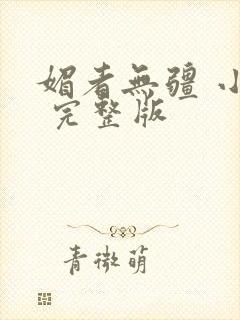 媚者無疆 小
完整版
青微萌